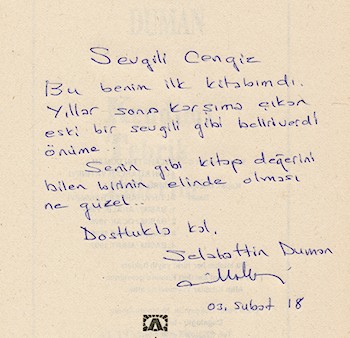 Sevgili Cengiz
Bu benim ilk kitabımdı.
Yıllar sonra karşıma çıkan
eski bir sevgili gibi beliriverdi
önüme..
Senin gibi kitap değerini
bilen birinin elinde olması
ne güzel..
Dostlukla kal.
Selahattin Duman
03. Şubat 18